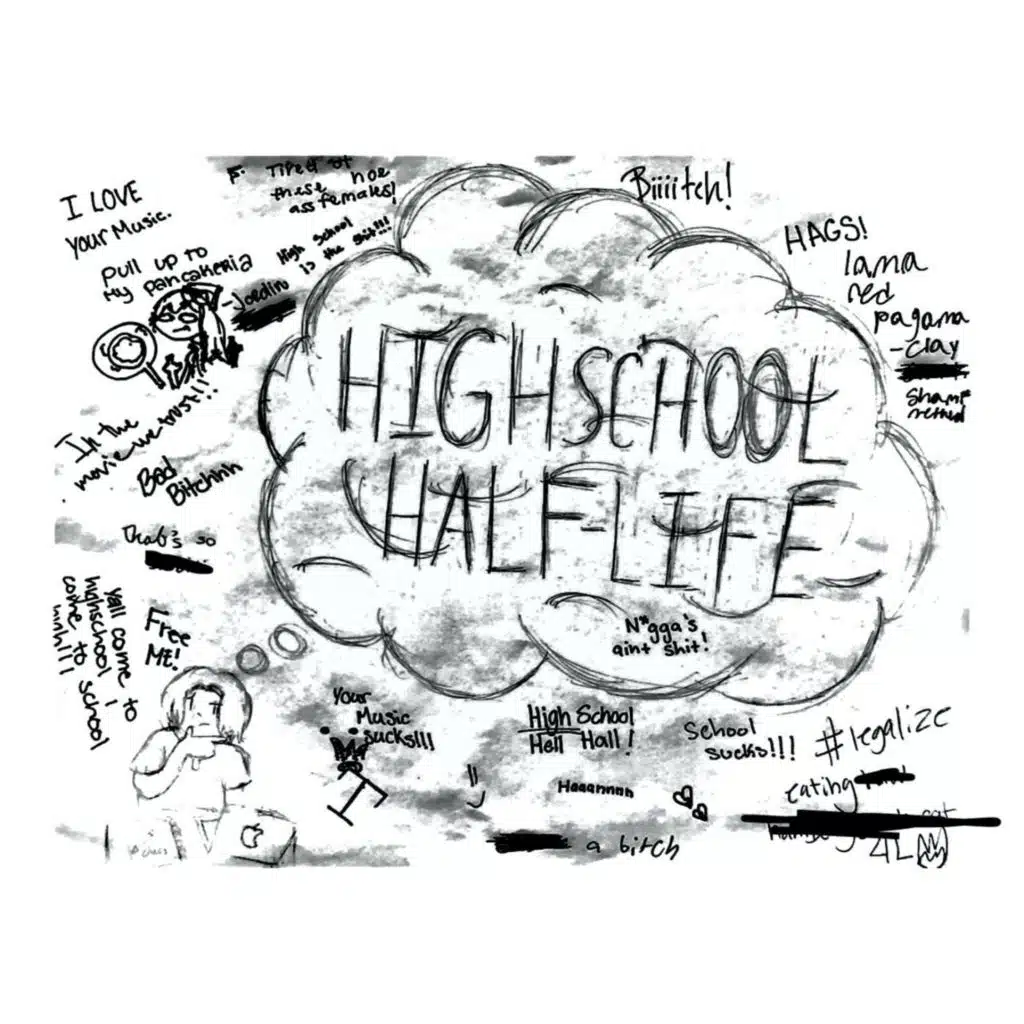 I LOVE
Your Music.
Tired of
these hoe
ass females!
High School
Is the Shit!!!
Pull up to
My Pancakeria
-Joedin
Biiiitch!
HAGS!
lama
red
pagama
-Clay
HIGHSCHOOL
HALFLIFE
In the
movie we trust!!
Bad
Bitchhhh
That's so
yall come to
highschool i
come to school
Free
ME!
N*gga's
aint shit!
Your
Music
sucks!!!
High School
Hell Hall!
School
sucks!!!
#legalize
eating
Haaannnn
a bitch
4L